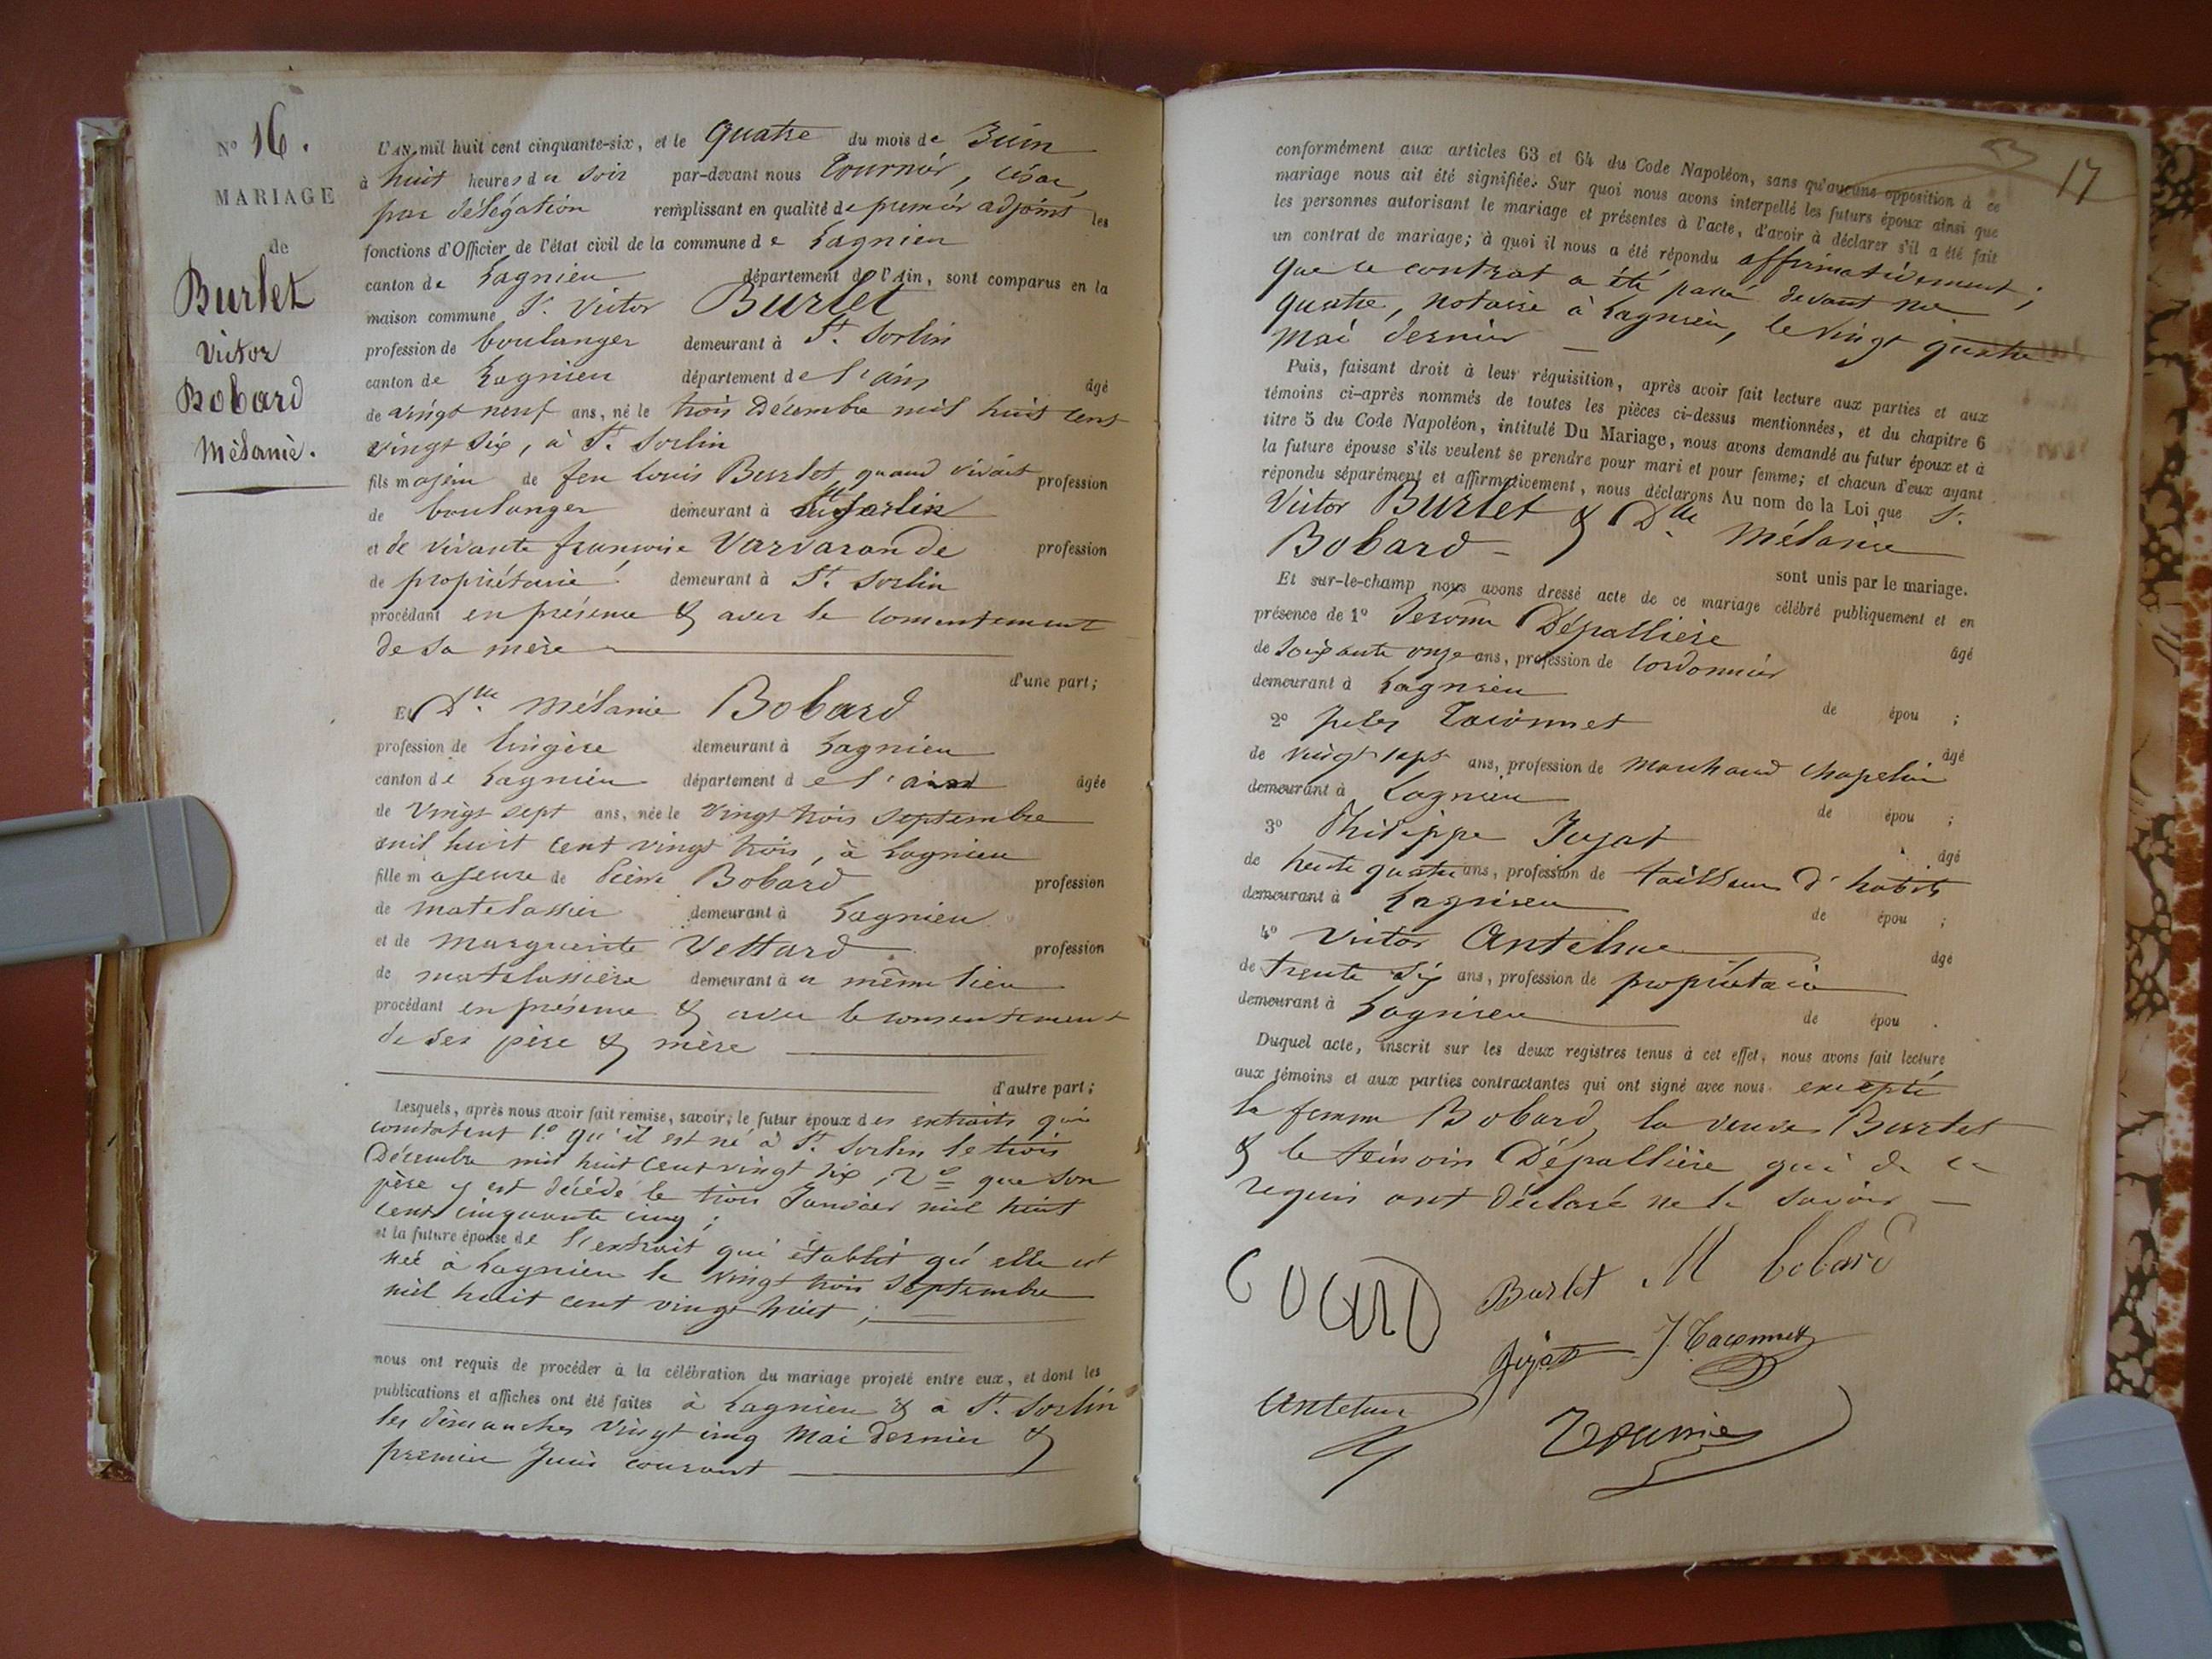 N° 16.
MARIAGE
de
Burlet
Victor
Bobard
Mélanie.
L'AN mil huit cent cinquante-six, et le quatre du mois de Juin
à huit heures du soir par-devant nous Tournier, César,
par délégation remplissant en qualité de premier adjoint les
fonctions d'Officier de l'état civil de la commune de Lagnieu
canton de Lagnieu département de l'Ain, sont comparus en la
maison commune Sr. Victor Burlet
profession de boulanger demeurant à St. Sorlin
canton de Lagnieu département de l'ain âgé
de vingt neuf ans, né le trois Décembre mil huit cent
vingt six, à St. Sorlin
fils majeur de feu Louis Burlet quand vivait profession
de boulanger demeurant à St Sorlin
et de vivante françoise Varvarande profession
de propriétaire demeurant à St. Sorlin
procédant en présence & avec le consentement
de sa mère
d'une part;
Et Dlle. Mélanie Bobard
profession de lingère demeurant à Lagnieu
canton de Lagnieu département de l'ain âgée
de vingt sept ans, née le vingt trois septembre
mil huit cent vingt trois, à Lagnieu
fille majeure de Pierre Bobard profession
de matelassier demeurant à Lagnieu
et de marguerite Vettard profession
de matelassière demeurant à u même lieu
procédant en présence & avec le consentement
de ses père & mère
d'autre part;
Lesquels, après nous avoir fait remise, savoir; le futur époux des extraits qui
constatent 1.° qu'il est né à St. Sorlin le trois
Décembre mil huit cent vingt six, 2° que son
père y est décédé le trois Janvier mil huit
cent cinquante cinq;
et la future épouse de l'extrait qui établit qu'elle est
née à Lagnieu le vingt trois septembre
mil huit cent vingt huit;
nous ont requis de procéder à la célébration du mariage projeté entre eux, et dont les
publications et affiches ont été faites à Lagnieu & à St. Sorlin
les dimanches vingt cinq Mai dernier &
premier Juin courant
17
conformément aux articles 63 et 64 du Code Napoléon, sans qu'aucune opposition à ce
mariage nous ait été signifiée. Sur quoi nous avons interpellé les futurs époux ainsi que
les personnes autorisant le mariage et présentes à l'acte, d'avoir à déclarer s'il a été fait
un contrat de mariage; à quoi il nous a été répondu affirmativement;
que ce contrat a été passé devant me
quatre, notaire à Lagnieu, le vingt quatre
mai dernier
Puis, faisant droit à leur réquisition, après avoir fait lecture aux parties et aux
témoins ci-après nommés de toutes les pièces ci-dessus mentionnées, et du chapitre 6
titre 5 du Code Napoléon, intitulé Du Mariage, nous avons demandé au futur époux et à
la future épouse s'ils veulent se prendre pour mari et pour femme; et chacun d'eux ayant
répondu séparément et affirmativement, nous déclarons Au nom de la Loi que Sr.
Victor Burlet & Dlle Mélanie
Bobard
sont unis par le mariage.
Et sur-le-champ nous avons dressé acte de ce mariage célébré publiquement et en
présence de 1° Jerôme Dépallière âgé
de soixante onze ans, profession de cordonnier
demeurant à Lagnieu de épou ;
2° Jules Taconnet âgé
de vingt sept ans, profession de marchand chapelier
demeurant à Lagnieu de épou ;
3° Philippe Jugat âgé
de trente quatre ans, profession de tailleur d'habits
demeurant à Lagnieu de épou ;
4° Victor Antelme âgé
de trente six ans, profession de propriétaire
demeurant à Lagnieu de épou .
Duquel acte, inscrit sur les deux registres tenus à cet effet, nous avons fait lecture
aux témoins et aux parties contractantes qui ont signé avec nous excepté
la femme Bobard, la veuve Burlet
& le témoin Dépallière qui de ce
requis ont déclaré ne le savoir
Burlet M bobard
Jugat J. Taconnet
Antelme
Tournier